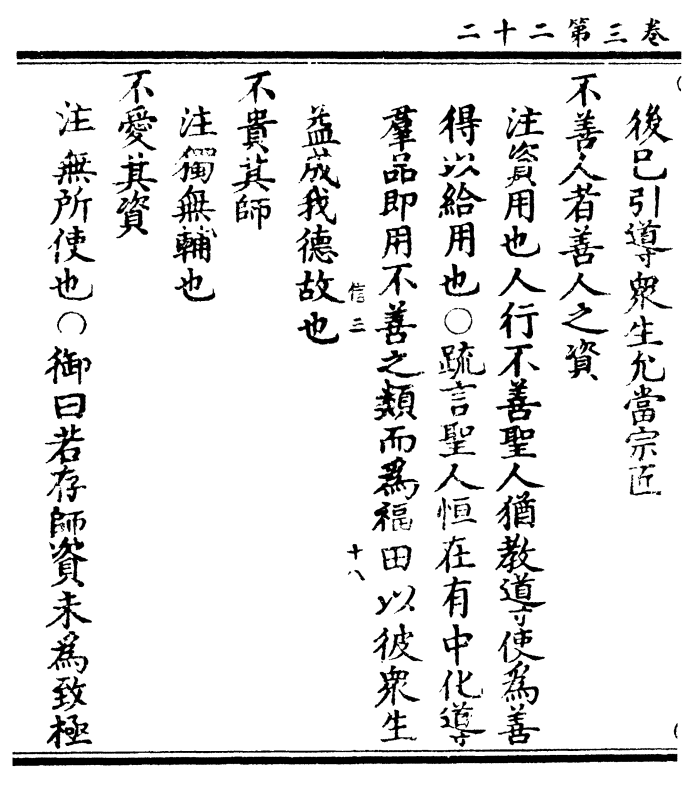 卷三第二十二
後已引導衆生允當宗匠
不善人者善人之資
注資用也人行不善聖人猶教導使爲善
得以給用也〇疏言聖人恒在有中化導
羣品即用不善之類而爲福田以彼衆生
信三
十八
益成我德故也
不貴其師
注獨無輔也
不愛其資
注無所使也〇御曰若存師資未爲致極